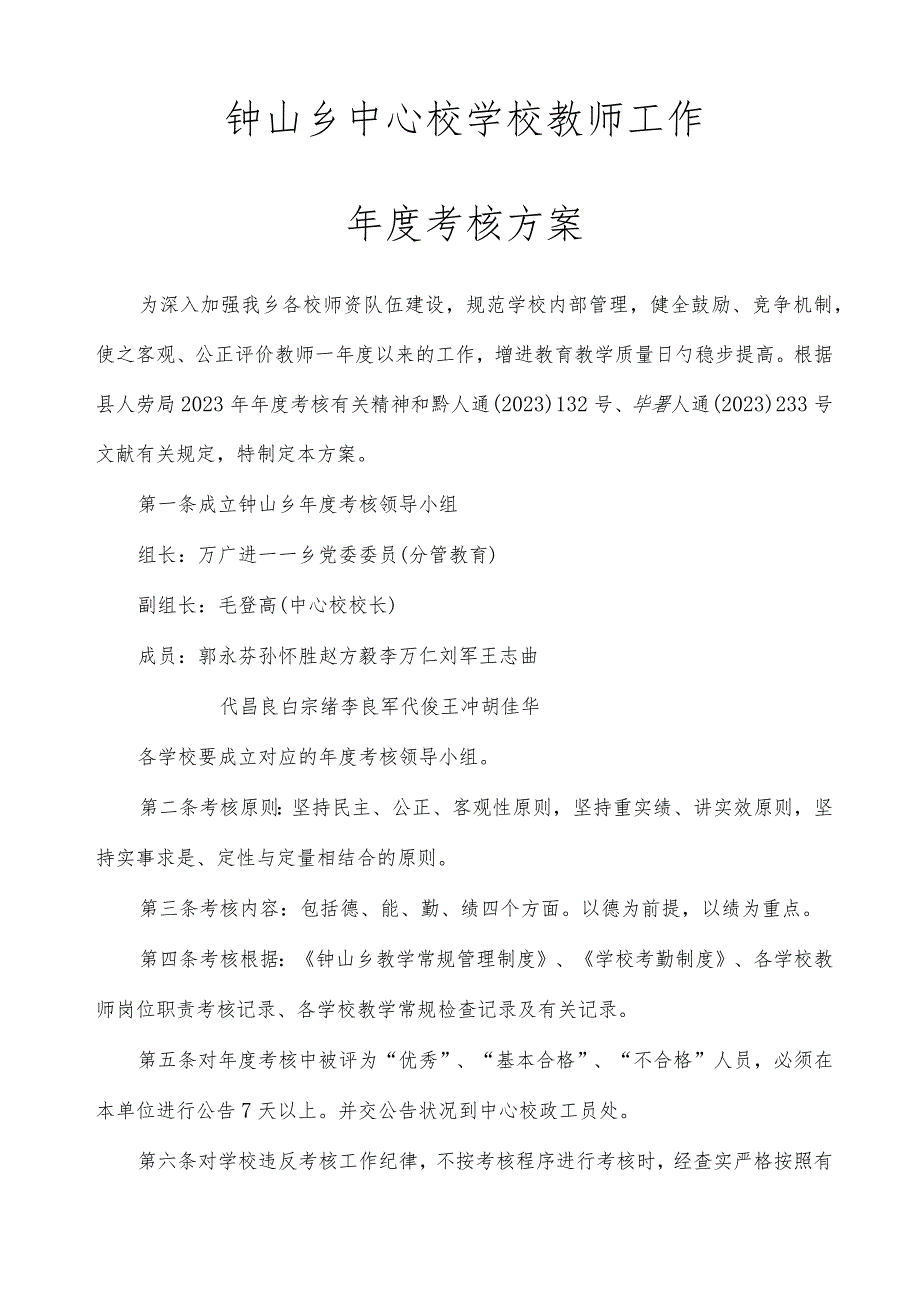 钟山乡中心校学校教师工作
年度考核方案
为深入加强我乡各校师资队伍建设，规范学校内部管理，健全鼓励、竞争机制，
使之客观、公正评价教师一年度以来的工作，增进教育教学质量日勺稳步提高。根据
县人劳局2023年年度考核有关精神和黔人通(2023)132号、毕署人通(2023)233号
文献有关规定，特制定本方案。
第一条成立钟山乡年度考核领导小组
组长：万广进一一乡党委委员(分管教育)
副组长：毛登高(中心校校长)
成员：郭永芬孙怀胜赵方毅李万仁刘军王志曲
代昌良白宗绪李良军代俊王冲胡佳华
各学校要成立对应的年度考核领导小组。
第二条考核原则：坚持民主、公正、客观性原则，坚持重实绩、讲实效原则，坚
持实事求是、定性与定量相结合的原则。
第三条考核内容：包括德、能、勤、绩四个方面。以德为前提，以绩为重点。
第四条考核根据：《钟山乡教学常规管理制度》、《学校考勤制度》、各学校教
师岗位职责考核记录、各学校教学常规检查记录及有关记录。
第五条对年度考核中被评为“优秀”、“基本合格”、“不合格”人员，必须在
本单位进行公告7天以上。并交公告状况到中心校政工员处。
第六条对学校违反考核工作纪律，不按考核程序进行考核时，经查实严格按照有